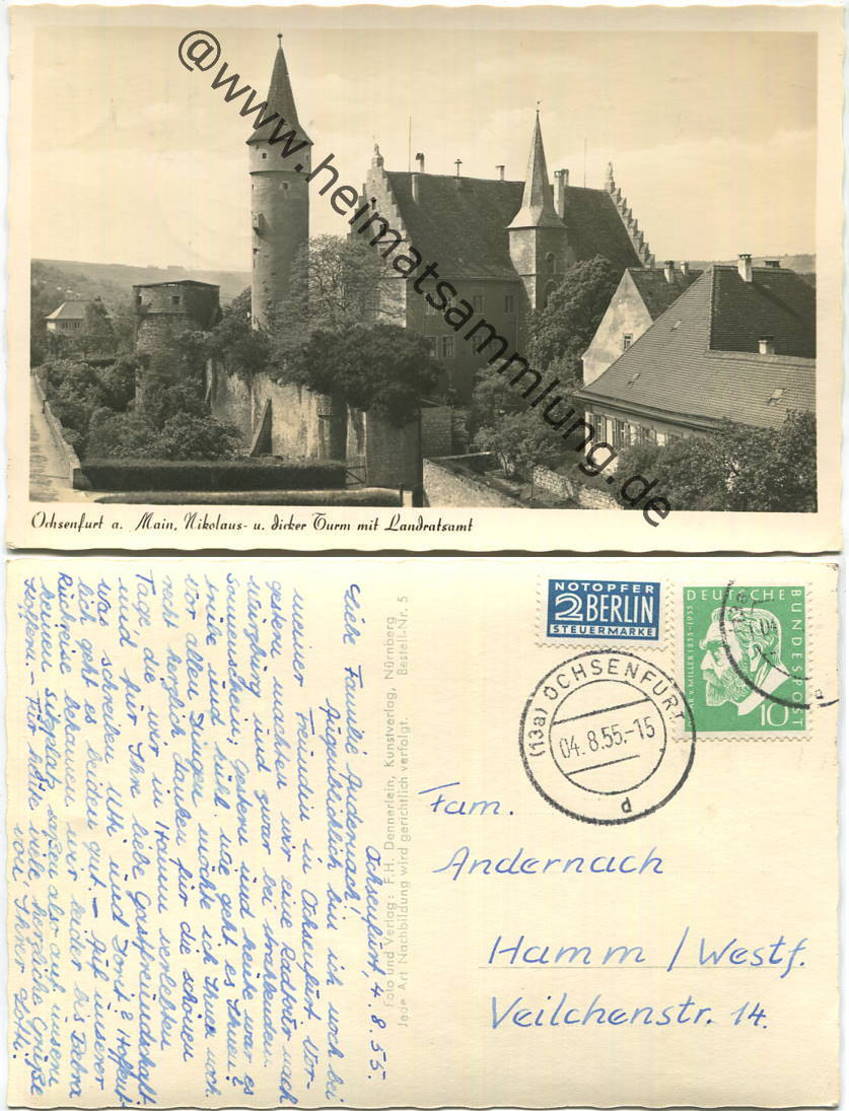 @www.heimatsammlung.de
Ochsenfurt a. Main, Nikolaus- u. dicker Turm mit Landratsamt
NOTOPFER
2 BERLIN
STEUERMARKE
DEUTSCHE BUNDESPOST
V. MILLER 1855-1955
10
(13a) OCHSENFURT
04.8.55.-15
d
Fam.
Andernach
Hamm / Westf.
Veilchenstr. 14.
Foto und Verlag: F.H. Dennerlein, Kunstverlag, Nürnberg
Jede Art Nachbildung wird gerichtlich verfolgt. Bestell-Nr. 5
Ochsenfurt, 4.8.55.
Liebe Familie Andernach!
Augenblicklich bin ich noch bei
meiner Freundin in Ochsenfurt. Vor-
gestern machten wir eine Radtour nach
Würzburg und zwar bei strahlendem
Sonnenschein; gestern und heute war es
trübe und kühl. Wie geht es Ihnen?
Vor allen Dingen möchte ich Ihnen noch
recht herzlich danken für die schönen
Tage die wir in Hamm verlebten
und für Ihre liebe Gastfreundschaft.
Was schreiben Uth. und Dorit? Hoffent-
lich geht es beiden gut. - Auf unserer
Rückreise bekamen wir leider bis Bebra
keinen Sitzplatz, saßen also auf unsern
Koffern. - Für heute viele herzliche Grüße
von Ihrer Lothi.